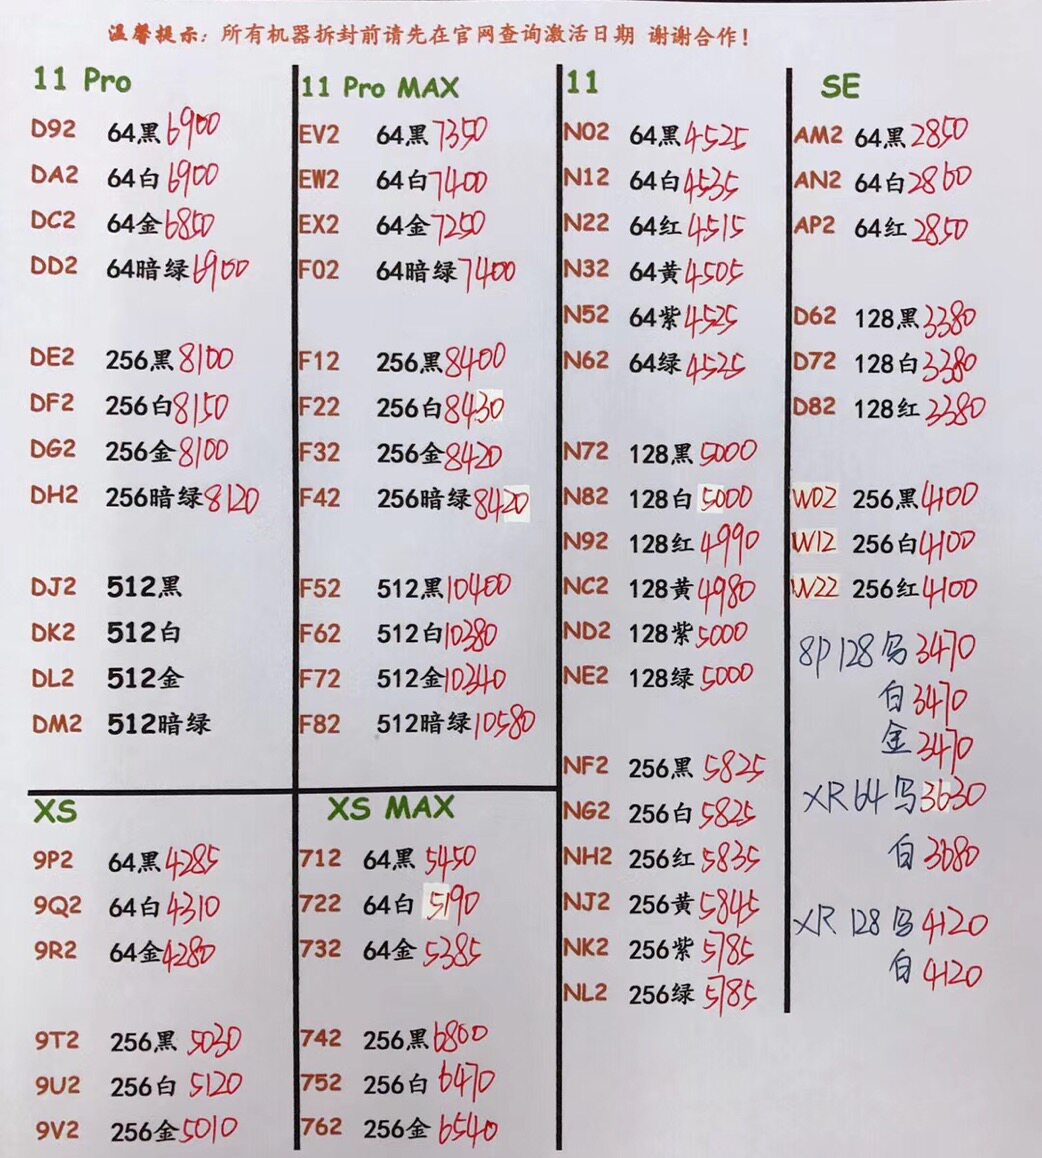 温馨提示：所有机器拆封前请先在官网查询激活日期 谢谢合作！
11 Pro
D92 64黑 6900
DA2 64白 6900
DC2 64金 6850
DD2 64暗绿 6900
DE2 256黑 8100
DF2 256白 8150
DG2 256金 8100
DH2 256暗绿 8120
DJ2 512黑
DK2 512白
DL2 512金
DM2 512暗绿
XS
9P2 64黑 4285
9Q2 64白 4310
9R2 64金 4280
9T2 256黑 5030
9U2 256白 5120
9V2 256金 5010
11 Pro MAX
EV2 64黑 7350
EW2 64白 7400
EX2 64金 7250
F02 64暗绿 7400
F12 256黑 8400
F22 256白 8430
F32 256金 8420
F42 256暗绿 8420
F52 512黑 10400
F62 512白 10380
F72 512金 10340
F82 512暗绿 10580
XS MAX
712 64黑 5450
722 64白 5190
732 64金 5385
742 256黑 6800
752 256白 6470
762 256金 6540
11
N02 64黑 4525
N12 64白 4535
N22 64红 4515
N32 64黄 4505
N52 64紫 4525
N62 64绿 4525
N72 128黑 5000
N82 128白 5000
N92 128红 4990
NC2 128黄 4980
ND2 128紫 5000
NE2 128绿 5000
NF2 256黑 5825
NG2 256白 5825
NH2 256红 5835
NJ2 256黄 5845
NK2 256紫 5785
NL2 256绿 5785
SE
AM2 64黑 2850
AN2 64白 2860
AP2 64红 2850
D62 128黑 3380
D72 128白 3380
D82 128红 3380
W02 256黑 4100
W12 256白 4100
W22 256红 4100
8P 128 3470
白 3470
金 3470
XR 64 3630
白 3680
XR 128 4120
白 4120